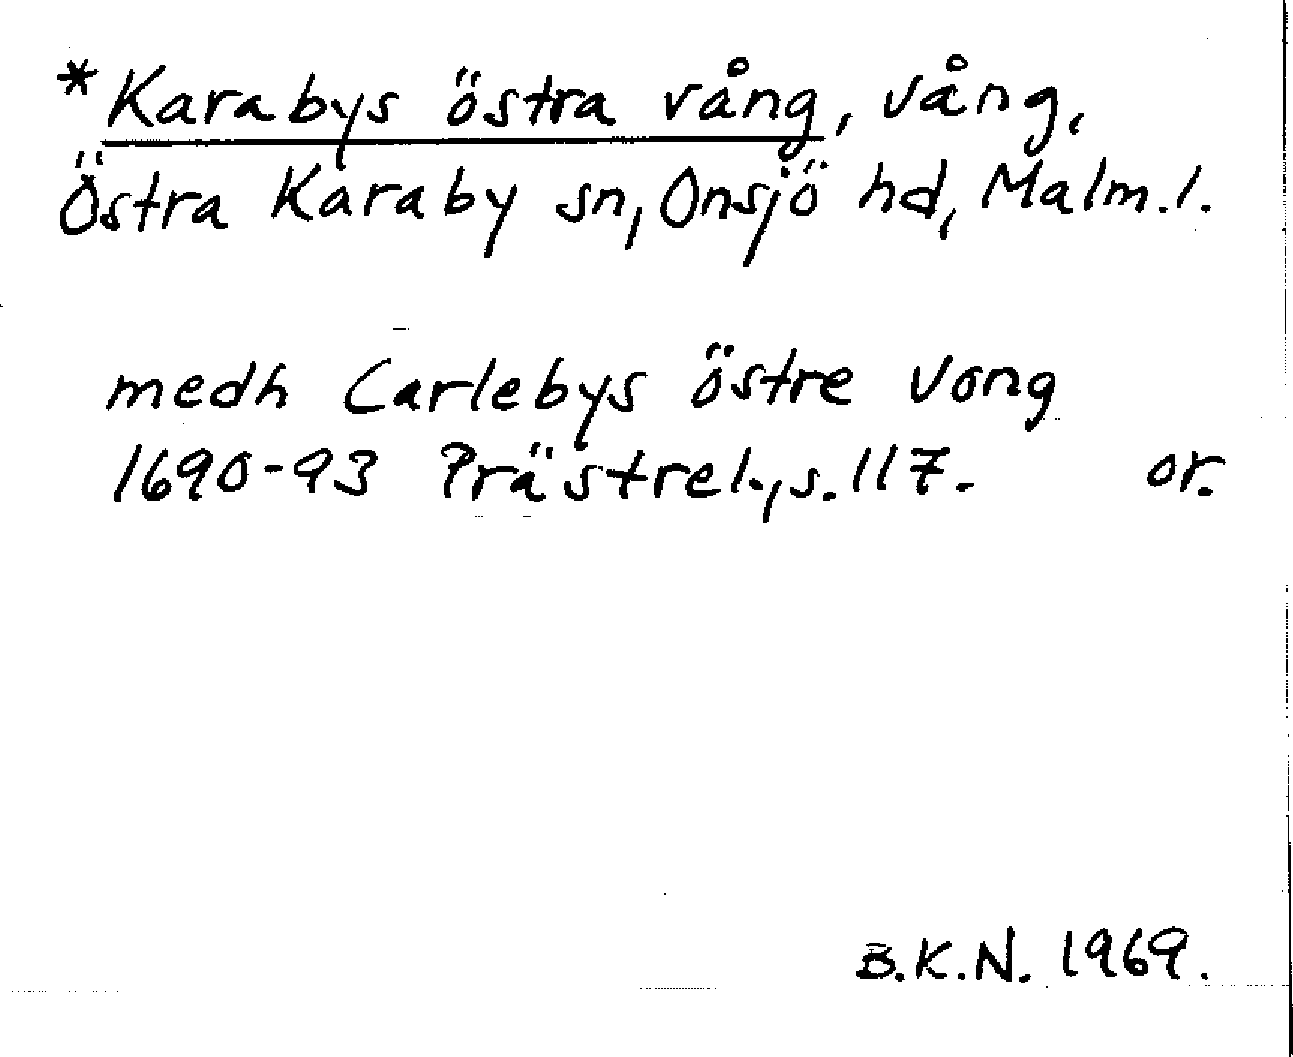 *Karabys östra vång, vång,
Östra Karaby sn, Onsjö hd, Malm.l.
medh Carlebys östre vong
1690-93 Prästrel., s. 117. or.
B.K.N. 1969.